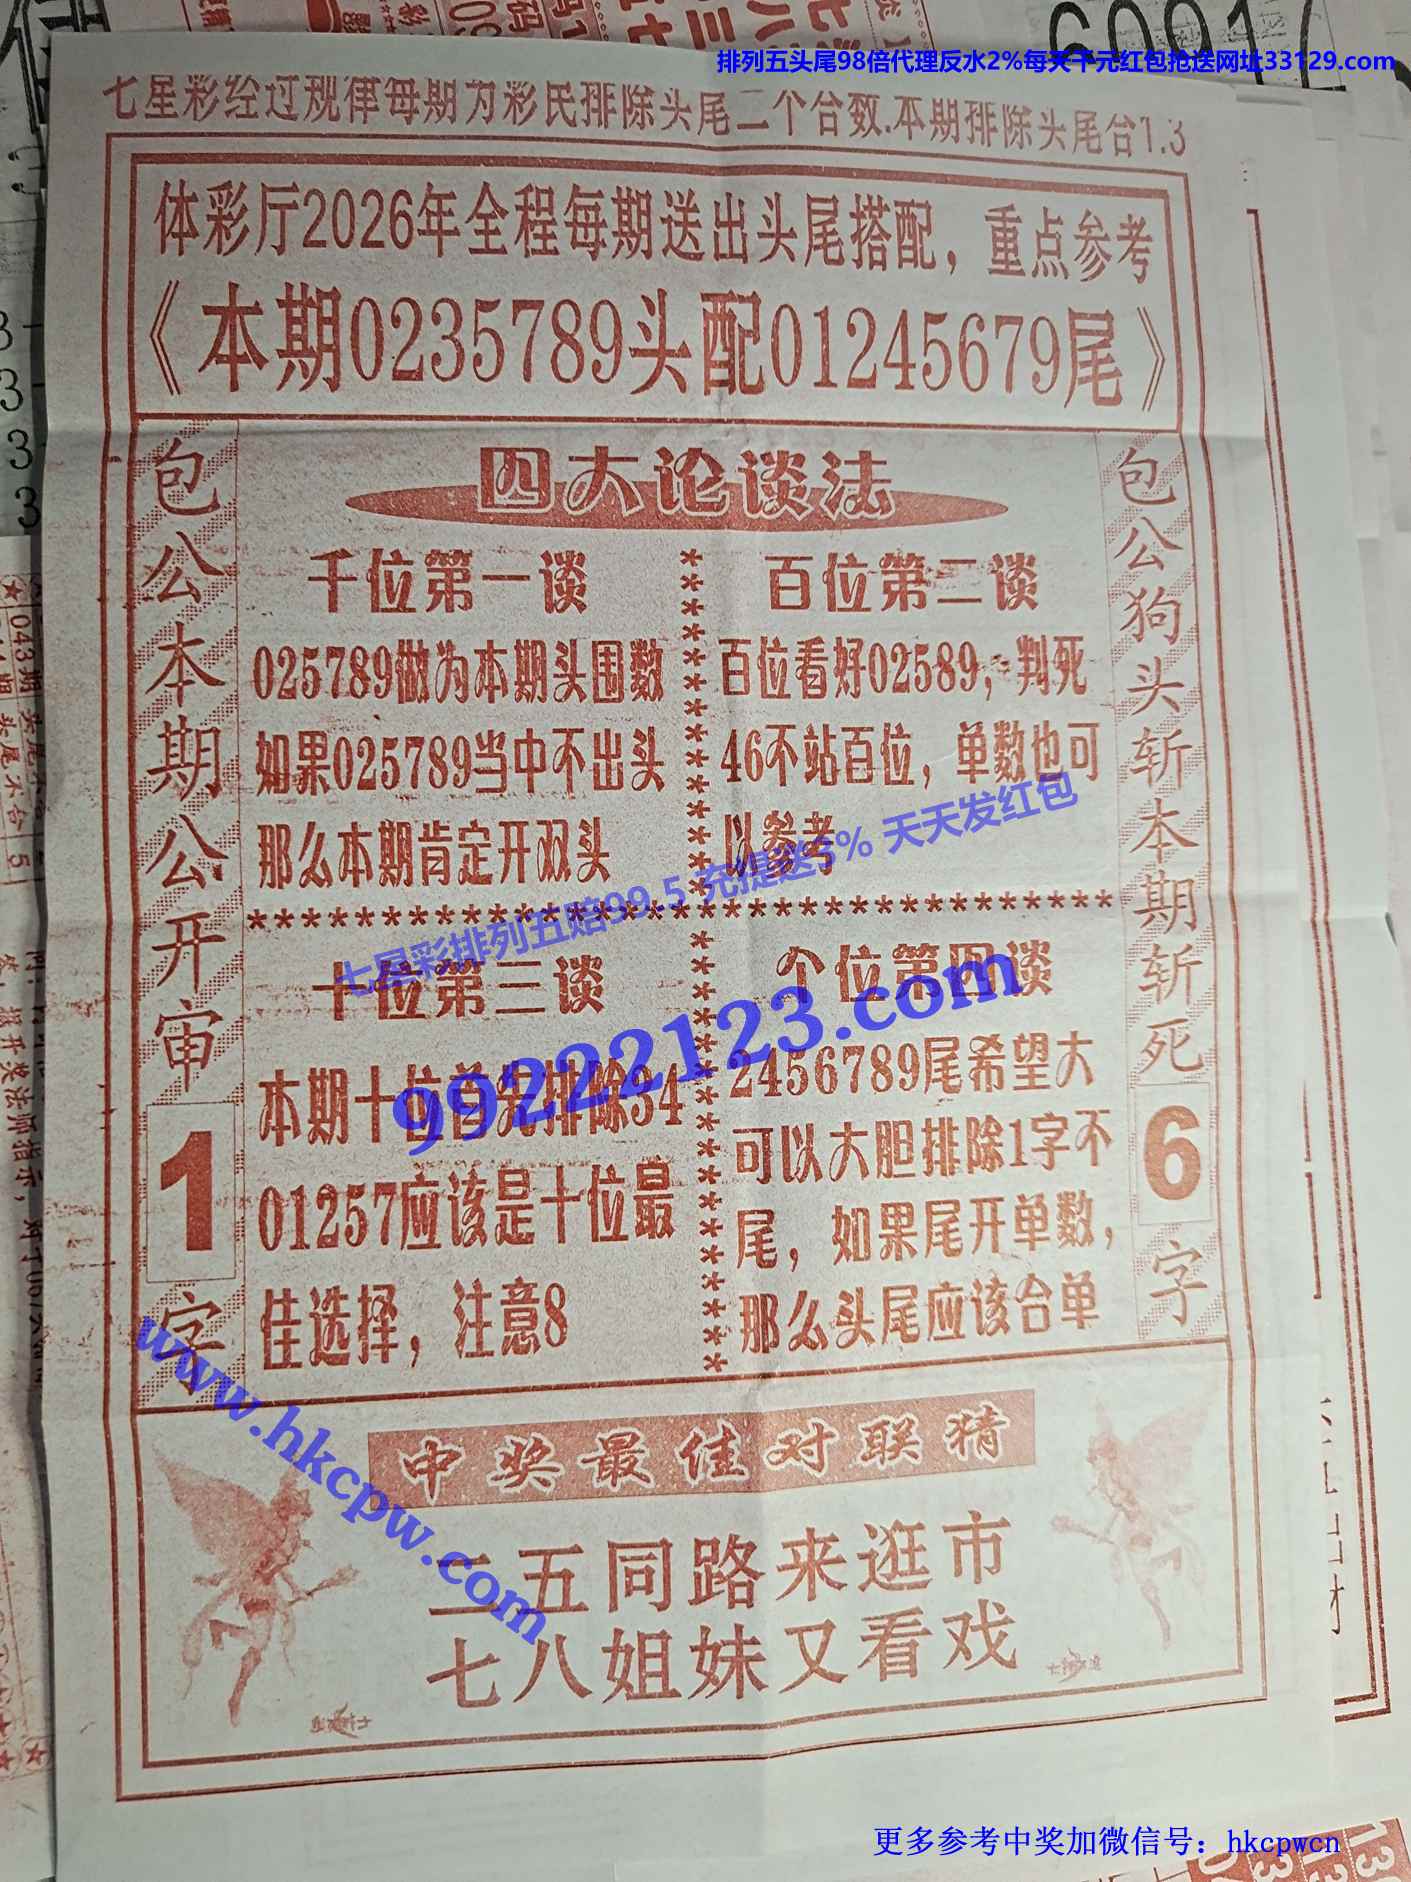 排列五头尾98倍代理反水2%每天千元红包抢送网址33129.com
七星彩经过规律每期为彩民排除头尾二个合数.本期排除头尾合1.3
体彩厅2026年全程每期送出头尾搭配，重点参考
《本期0235789头配01245679尾》
包公本期公开审
1
字
四大论谈法
千位第一谈
025789做为本期头围数
如果025789当中不出头
那么本期肯定开双头
百位第二谈
百位看好02589，判死
46不站百位，单数也可
以参考
********************************
七星彩排列五赔99.5 充提送3% 天天发红包
十位第三谈
本期十位首先排除34
01257应该是十位最
佳选择，注意8
个位第四谈
2456789尾希望大
可以大胆排除1字不
尾，如果尾开单数，
那么头尾应该合单
99222123.com
包公狗头斩本期斩死
6
字
www.hkcpw.com
中奖最佳对联猜
二五同路来逛市
七八姐妹又看戏
更多参考中奖加微信号：hkcpwcn